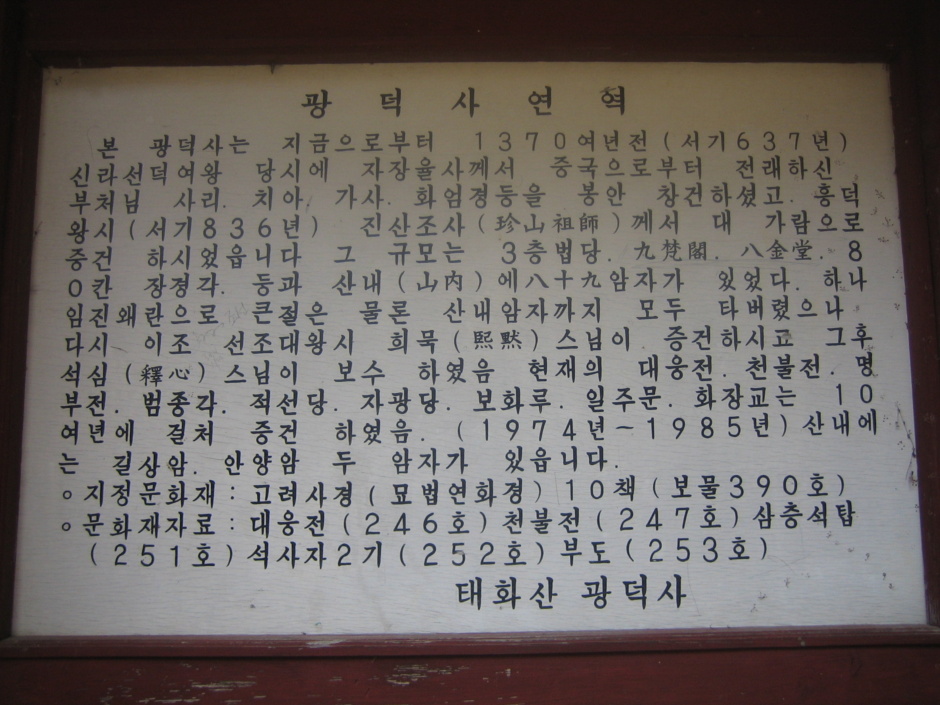 광덕사연역
본 광덕사는 지금으로부터 1370여년전(서기637년)
신라선덕여왕 당시에 자장율사께서 중국으로부터 전래하신
부처님 사리. 치아. 가사. 화엄경등을 봉안 창건하셨고. 흥덕
왕시(서기836년) 진산조사(珍山祖師)께서 대 가람으로
중건 하시었읍니다 그 규모는 3층법당. 九梵閣. 八金堂. 8
0칸 장경각. 등과 산내(山內)에八十九암자가 있었다. 하나
임진왜란으로 큰절은 물론 산내암자까지 모두 타버렸으나
다시 이조 선조대왕시 희묵(熙黙)스님이 중건하시고 그후
석심(釋心)스님이 보수 하였음 현재의 대웅전. 천불전. 명
부전. 범종각. 적선당. 자광당. 보화루. 일주문. 화장교는 10
여년에 걸처 중건 하였음. (1974년~1985년)산내에
는 길상암. 안양암 두 암자가 있읍니다.
◦지정문화재:고려사경(묘법연화경)10책(보물390호)
◦문화재자료:대웅전(246호)천불전(247호)삼층석탑
(251호)석사자2기(252호)부도(253호)
태화산 광덕사